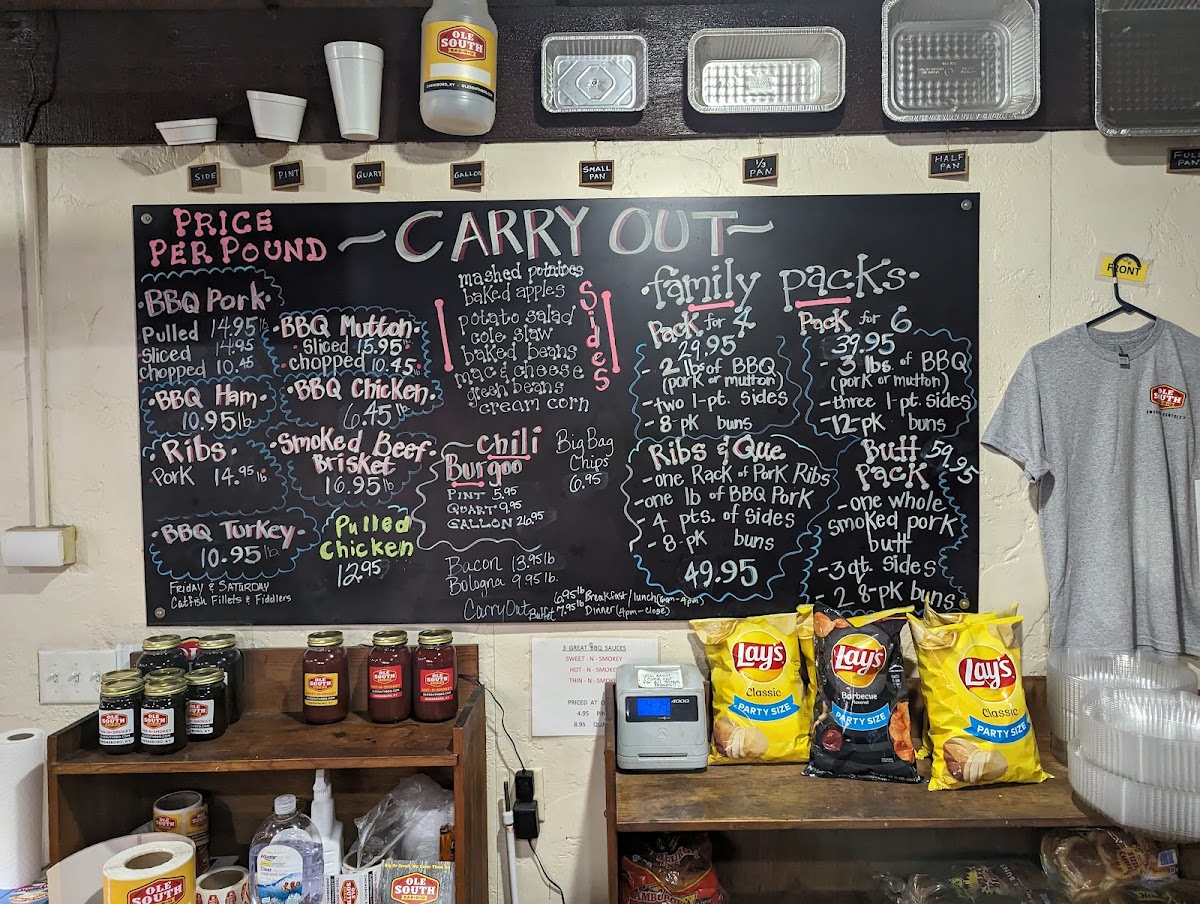 OLE SOUTH
BAR-B-Q
SIDE
PINT
QUART
GALLON
SMALL PAN
1/3 PAN
HALF PAN
FULL PAN
PRICE
PER POUND
~CARRY OUT~
BBQ Pork.
Pulled 14.95 lb
Sliced 14.95
chopped 10.45
BBQ Ham.
10.95 lb
Ribs.
Pork 14.95 lb
BBQ Turkey.
10.95 lb
FRIDAY & SATURDAY
Catfish Fillets & Fiddlers
BBQ Mutton.
Sliced 15.95 lb
chopped 10.45 lb
BBQ Chicken.
6.45 lb
Smoked Beef
Brisket
16.95 lb
Pulled
Chicken
12.95
mashed potatoes
baked apples
potato salad
cole slaw
baked beans
mac & cheese
green beans
cream corn
Sides
chili
Burgoo
PINT 5.95
QUART 9.95
GALLON 26.95
Big Bag
Chips
6.95
Bacon 13.95 lb.
Bologna 9.95 lb.
Carry Out Buffet
6.95 lb Breakfast/lunch (6am-4pm)
7.95 lb Dinner (4pm-close)
family packs.
Pack for 4
29.95
- 2 lbs of BBQ
(pork or mutton)
- two 1-pt. sides
- 8-pk buns
Pack for 6
39.95
- 3 lbs. of BBQ
(pork or mutton)
- three 1 pt. sides
- 12-pk buns
Ribs & Que
- one Rack of Pork Ribs
- one lb of BBQ Pork
- 4 pts. of Sides
- 8-pk buns
49.95
Butt 59.95
Pack
- one whole
smoked pork
butt
- 3 qt. sides
- 2 8-pk buns
FRONT
OLE
SOUTH
3 GREAT BBQ SAUCES
SWEET - N - SMOKEY
HOT - N - SMOKE
THIN - N - SMOK
PRICED AT
4.95 PIN
8.95 QUA
4000
Lay's
Classic
PARTY SIZE
Lay's
Barbecue
flavored
PARTY SIZE
Lay's
Classic
PARTY SIZE
OLE
SOUTH
OLE
SOUTH